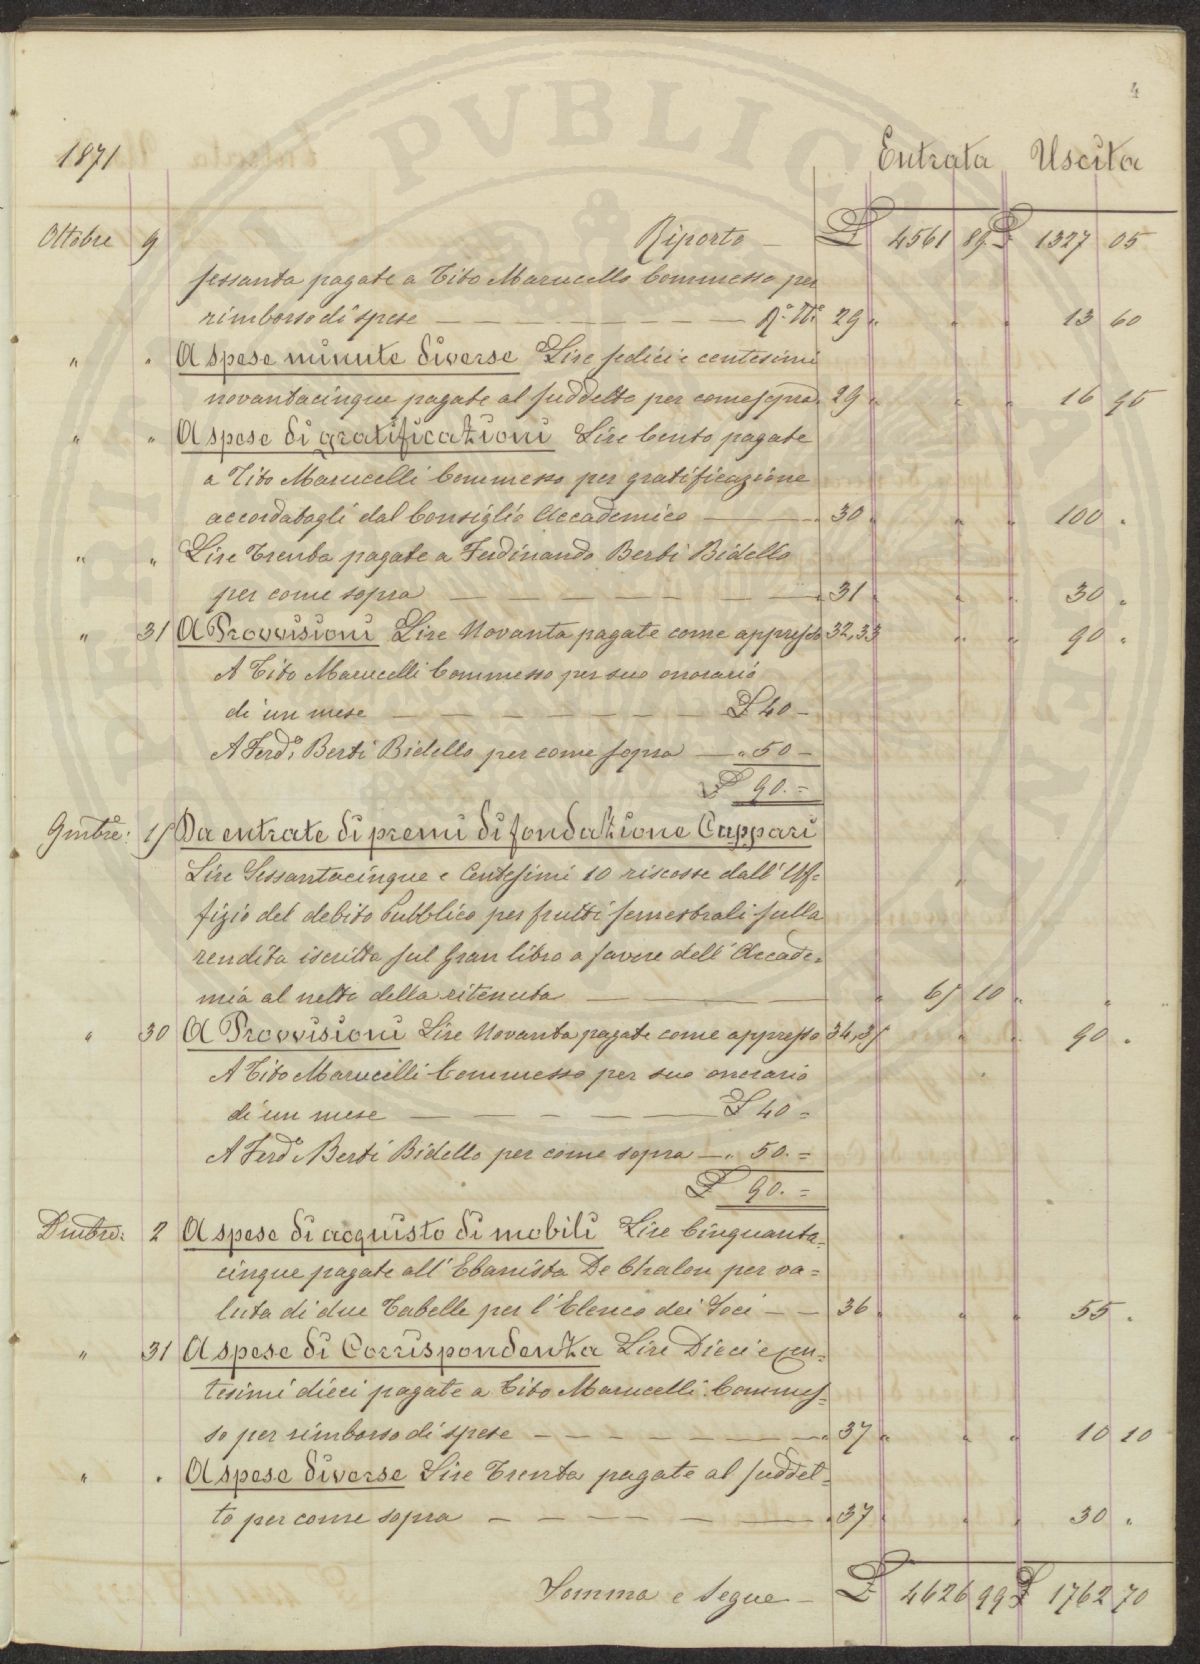 4
1871 Entrata Uscita
Ottobre 9 Riporto — £ 4561 89 £ 1327 05
sessanta pagate a Tito Marucelli Commesso per
rimborso di spese — — — — — — — R.° N.° 29 " " " 13 60
" " A spese minute diverse Lire sedici e centesimi
novantacinque pagate al suddetto per come sopra 29 " " " 16 95
" " A spese di gratificazioni Lire Cento pagate
a Tito Marucelli Commesso per gratificazione
accordatagli dal Consiglio Accademico — 30 " " " 100 "
" " Lire Trenta pagate a Ferdinando Berti Bidello
per come sopra — — — — — — " 31 " " " 30 "
" 31 A Provvisioni Lire Novanta pagate come appresso 32,33 " " 90 "
A Tito Marucelli Commesso per suo onorario
di un mese — — — — — — £ 40 —
A Ferd.° Berti Bidello per come sopra — " 50 —
£ 90. =
9mbre: 15 Da entrate di premi di fondazione Cappari
Lire Sessantacinque e Centesimi 10 riscosse dall'Uf=
fizio del debito Pubblico per frutti semestrali sulla
rendita iscritta sul Gran libro a favore dell'Accade=
mia al netto della ritenuta — " 65 10 " " "
" 30 A Provvisioni Lire Novanta pagate come appresso 34,35 " " 90 "
A Tito Marucelli Commesso per suo onorario
di un mese — — — — — £ 40 =
A Ferd.° Berti Bidello per come sopra — " 50. =
£ 90. =
Dmbre: 2 A spese di acquisto di mobili Lire Cinquanta=
cinque pagate all'Ebanista De Chalon per va=
luta di due Tabelle per l'Elenco dei Soci — — 36 " " " 55 "
" 31 A spese di Corrispondenza Lire Dieci e cen=
tesimi dieci pagate a Tito Marucelli Commes=
so per rimborso di spese — — — — — — " 37 " " " 10 10
" " A spese diverse Lire Trenta pagate al suddet=
to per come sopra — — — — — — " 37 " " " 30 "
Somma e Segue — £ 4626 99 £ 1762 70